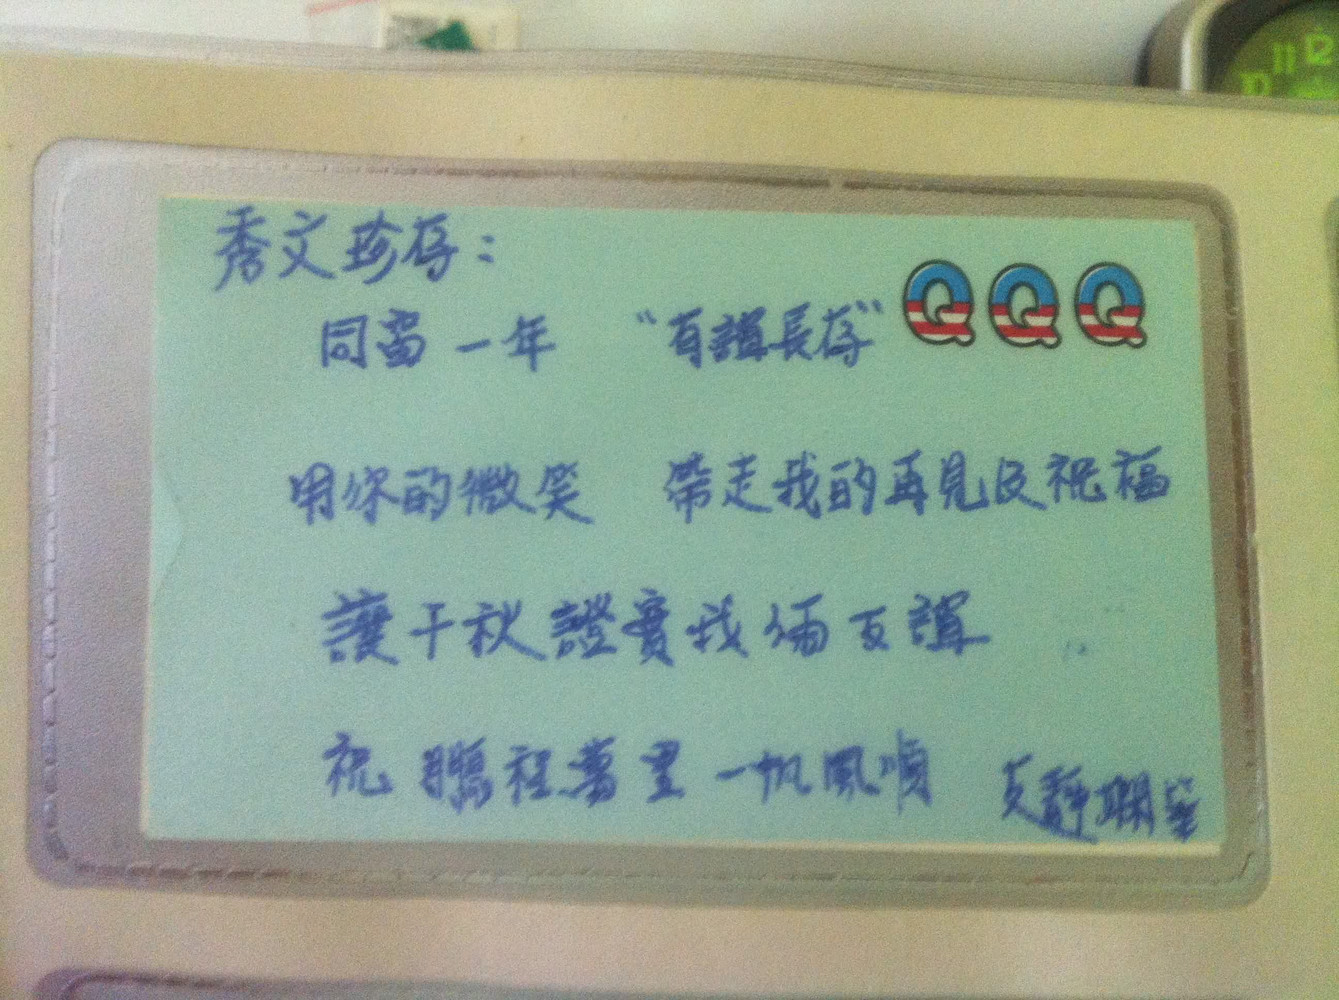 秀文珍存：
同窗一年 “有誼長存” QQQ
用你的微笑 帶走我的再見及祝福
讓千秋證實我倆友誼
祝 鵬程萬里 一帆風順
友靜嫻筆
10 11 12